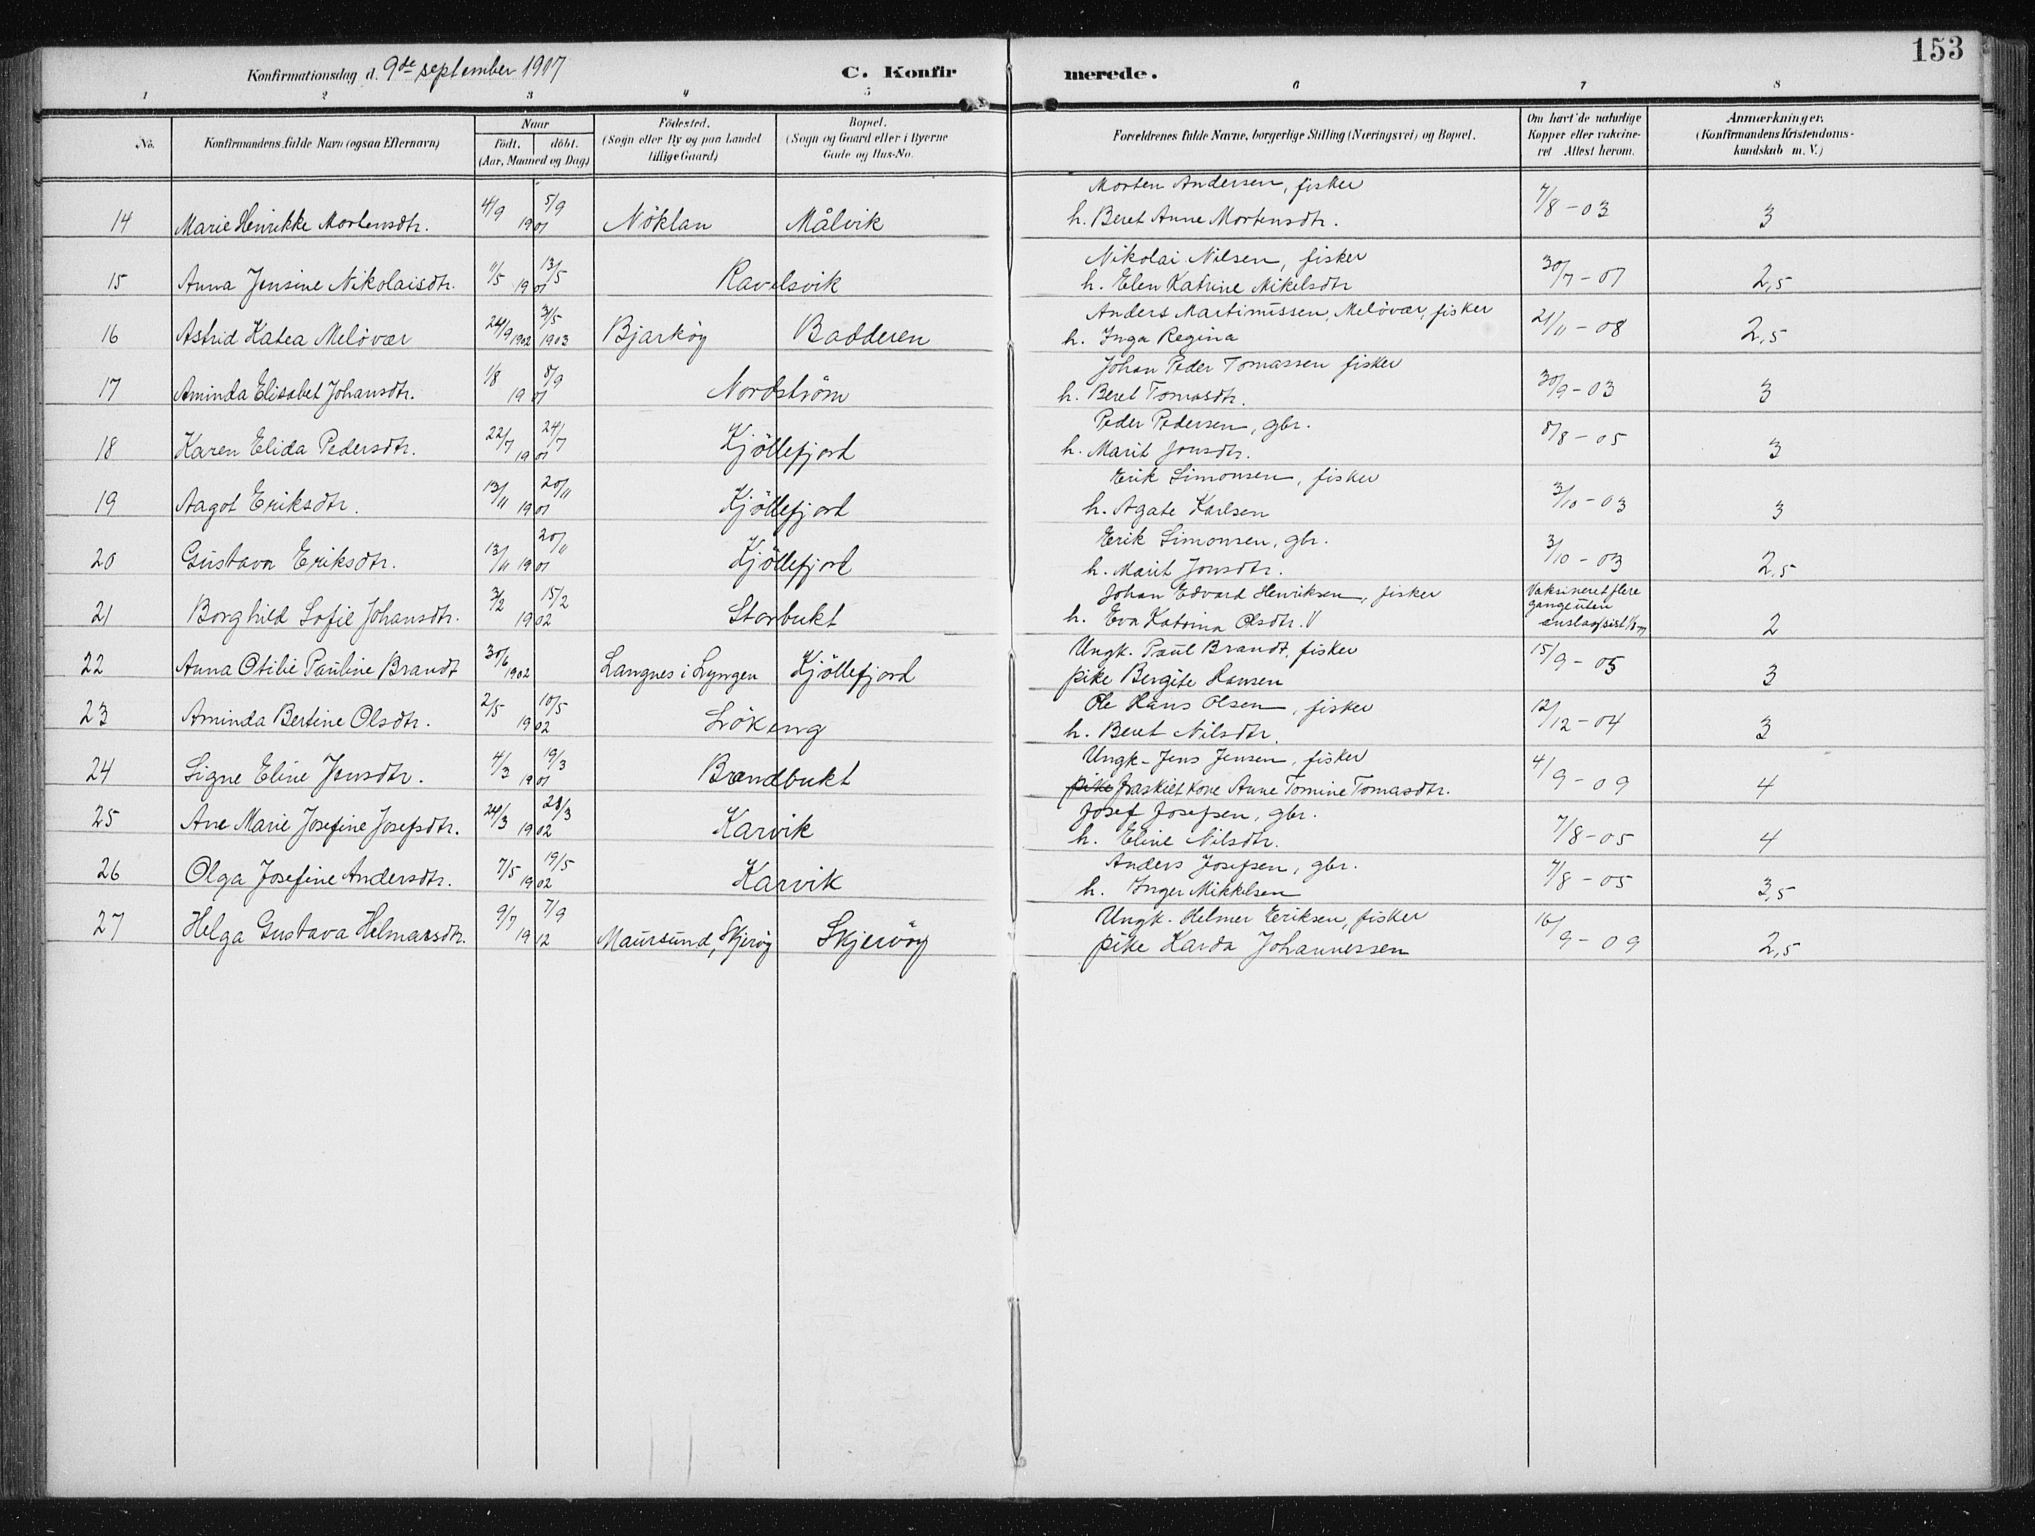 153
Konfirmationsdag d. 9de september 1917
C. Konfirmerede.
1 2 3 4 5 6 7 8
No. Konfirmandens fulde Navn (ogsaa Efternavn) Naar Födt. döbt. (Aar, Maaned og Dag) Födested. (Sogn eller By og paa Landet tillige Gaard) Bopæl. (Sogn og Gaard eller i Byerne Gade og Hus-No. Forældrenes fulde Navne, borgerlige Stilling (Næringsvei) og Bopæl. Om havt de naturlige Kopper eller vakcineret Attest herom. Anmærkninger. (Konfirmandens Kristendomskundskab m. V.)
Morten Andersen, fisker
14 Marie Henrikke Mortensdtr. 4/9 5/9 1901 Nöklan Målvik h. Beret Anne Mortensdtr. 7/8-03 3
Nikolai Nilsen, fisker
15 Anna Jensine Nikolaisdtr. 11/5 13/5 1901 Ravelsvik h. Elen Katrine Mikelsdtr 30/7-07 2,5
Anders Martinussen, Meløvær, fisker
16 Astrid Katea Meløvær 24/9 1902 31/5 1903 Bjarköy Badderen h. Inga Regina 21/11-08 2,5
Johan Peder Tomassen fisker
17 Aminda Elisabet Johansdtr. 1/8 8/9 1901 Nordström h. Beret Tomasdtr. 30/9-03 3
Peder Pedersen, gbr.
18 Karen Elida Pedersdtr. 22/7 24/7 1901 Kjöllefjord h. Marit Jonsdtr. 8/8-05 3
Erik Simonsen, fisker
19 Aagot Eriksdtr. 13/11 20/11 1901 Kjöllefjord h. Agate Karlsen 3/10-03 3
Erik Simonsen, gbr.
20 Gustava Eriksdtr. 13/11 20/11 1901 Kjöllefjord h. Marit Jonsdtr. 3/10-03 2,5
Johan Edvard Henriksen, fisker Vaksineret flere
21 Borghild Sofie Johansdtr. 3/2 15/2 1902 Storbukt h. Eva Katrina Olsdtr. gange uten 2
Ungk. Paul Brandt, fisker
22 Anna Otilie Pauline Brandt 30/6 1902 Langnes i Lyngen Kjöllefjord pike Bergite Hansen 15/9-05 3
Ole Hans Olsen, fisker
23 Aminda Bertine Olsdtr. 2/5 10/5 1902 Lökeng h. Beret Nilsdtr. 12/12-04 3
Ungk. Jens Jensen, fisker
24 Signe Eline Jensdtr. 4/3 19/3 1901 Brandbukt pike fraskilt kone Anne Tomine Tomasdtr. 4/9-09 4
Josef Josefsen, gbr.
25 Ane Marie Josefine Josefsdtr. 24/3 28/3 1902 Karvik h. Eline Nilsdtr. 7/8-05 4
Anders Josefsen, gbr.
26 Olga Josefine Andersdtr. 7/5 19/5 1902 Karvik h. Inger Mikkelsen 7/8-05 3,5
Ungk. Helmer Eriksen, fisker
27 Helga Gustava Helmarsdtr. 9/7 7/9 1912 Maursund, Skjervöy Skjervöy pike Karda Johannessen 16/9-09 2,5